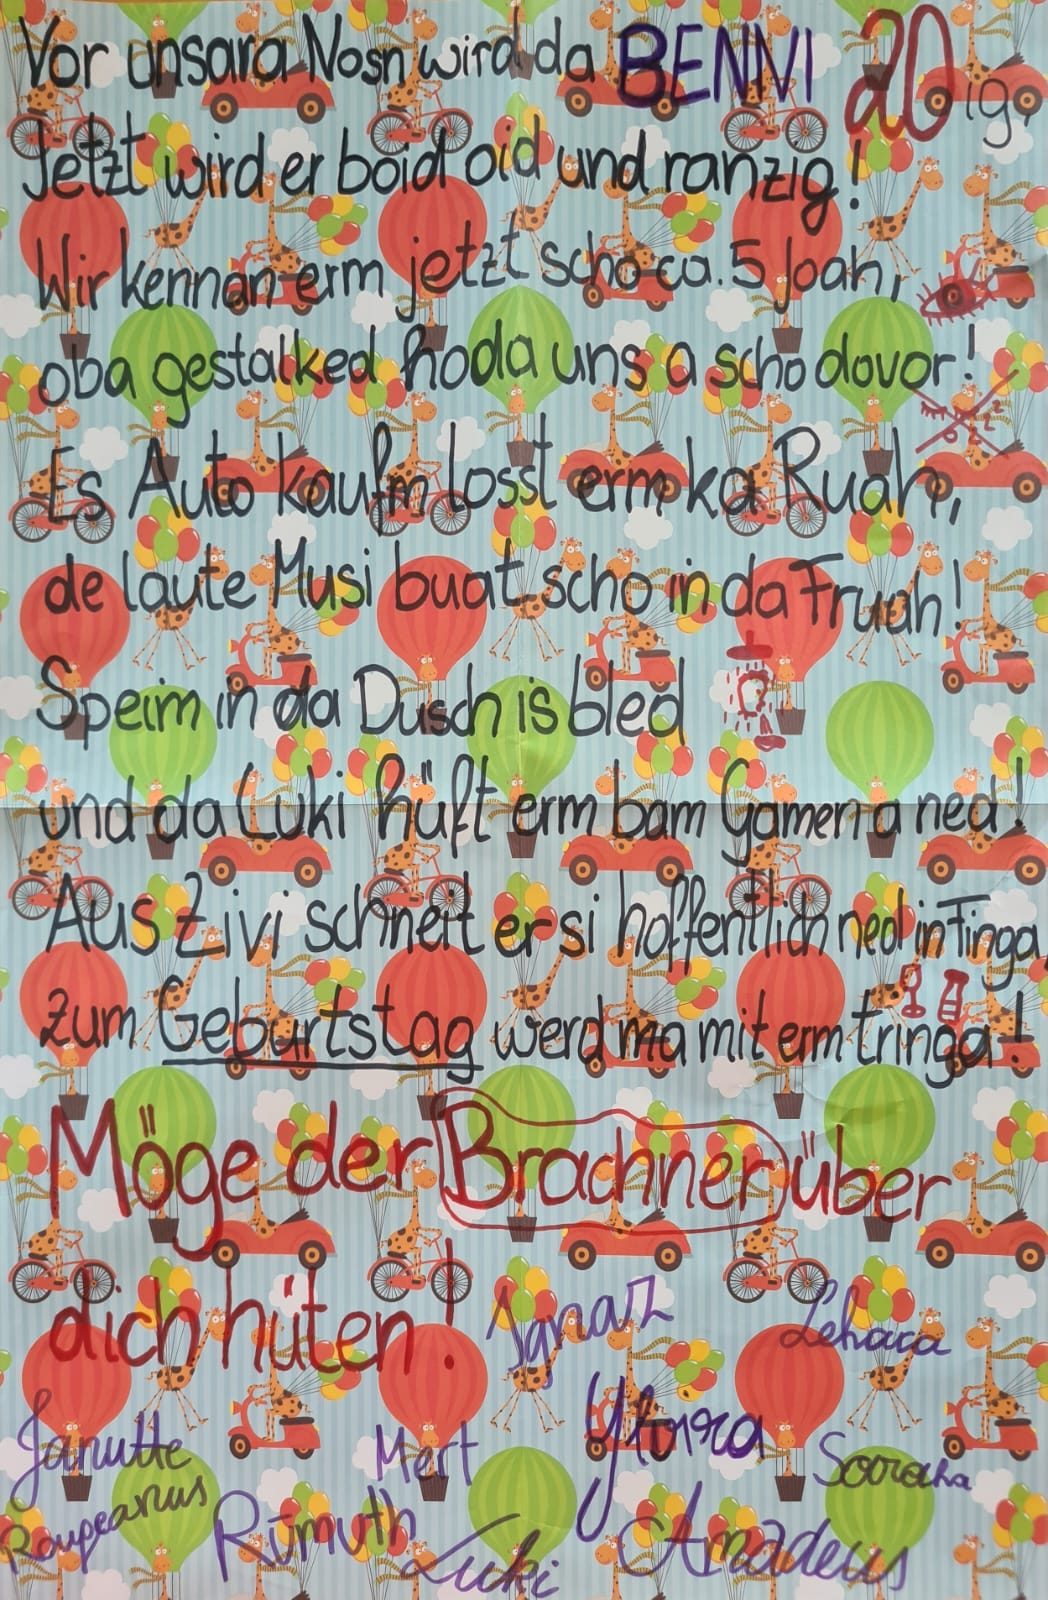 Vor unsara Nosn wird da BENNI 20ig,
Jetzt wird er boid oid und ranzig!
Wir kennan erm jetzt scho ca. 5 Joah,
oba gestalked hoda uns a scho dovor!
Es Auto kaufm losst erm ka Ruah,
de laute Musi buat scho in da Fruah!
Speim in da Dusch is bled
und da Luki hüft erm bam Gamen a ned!
Aus Zivi schneit er si hoffentlich ned in Finga,
zum Geburtstag werd ma mit erm tringa!
Möge der Brachner über
dich hüten!
Ignaz
Mert
Rümuth
Luki
Amadeus